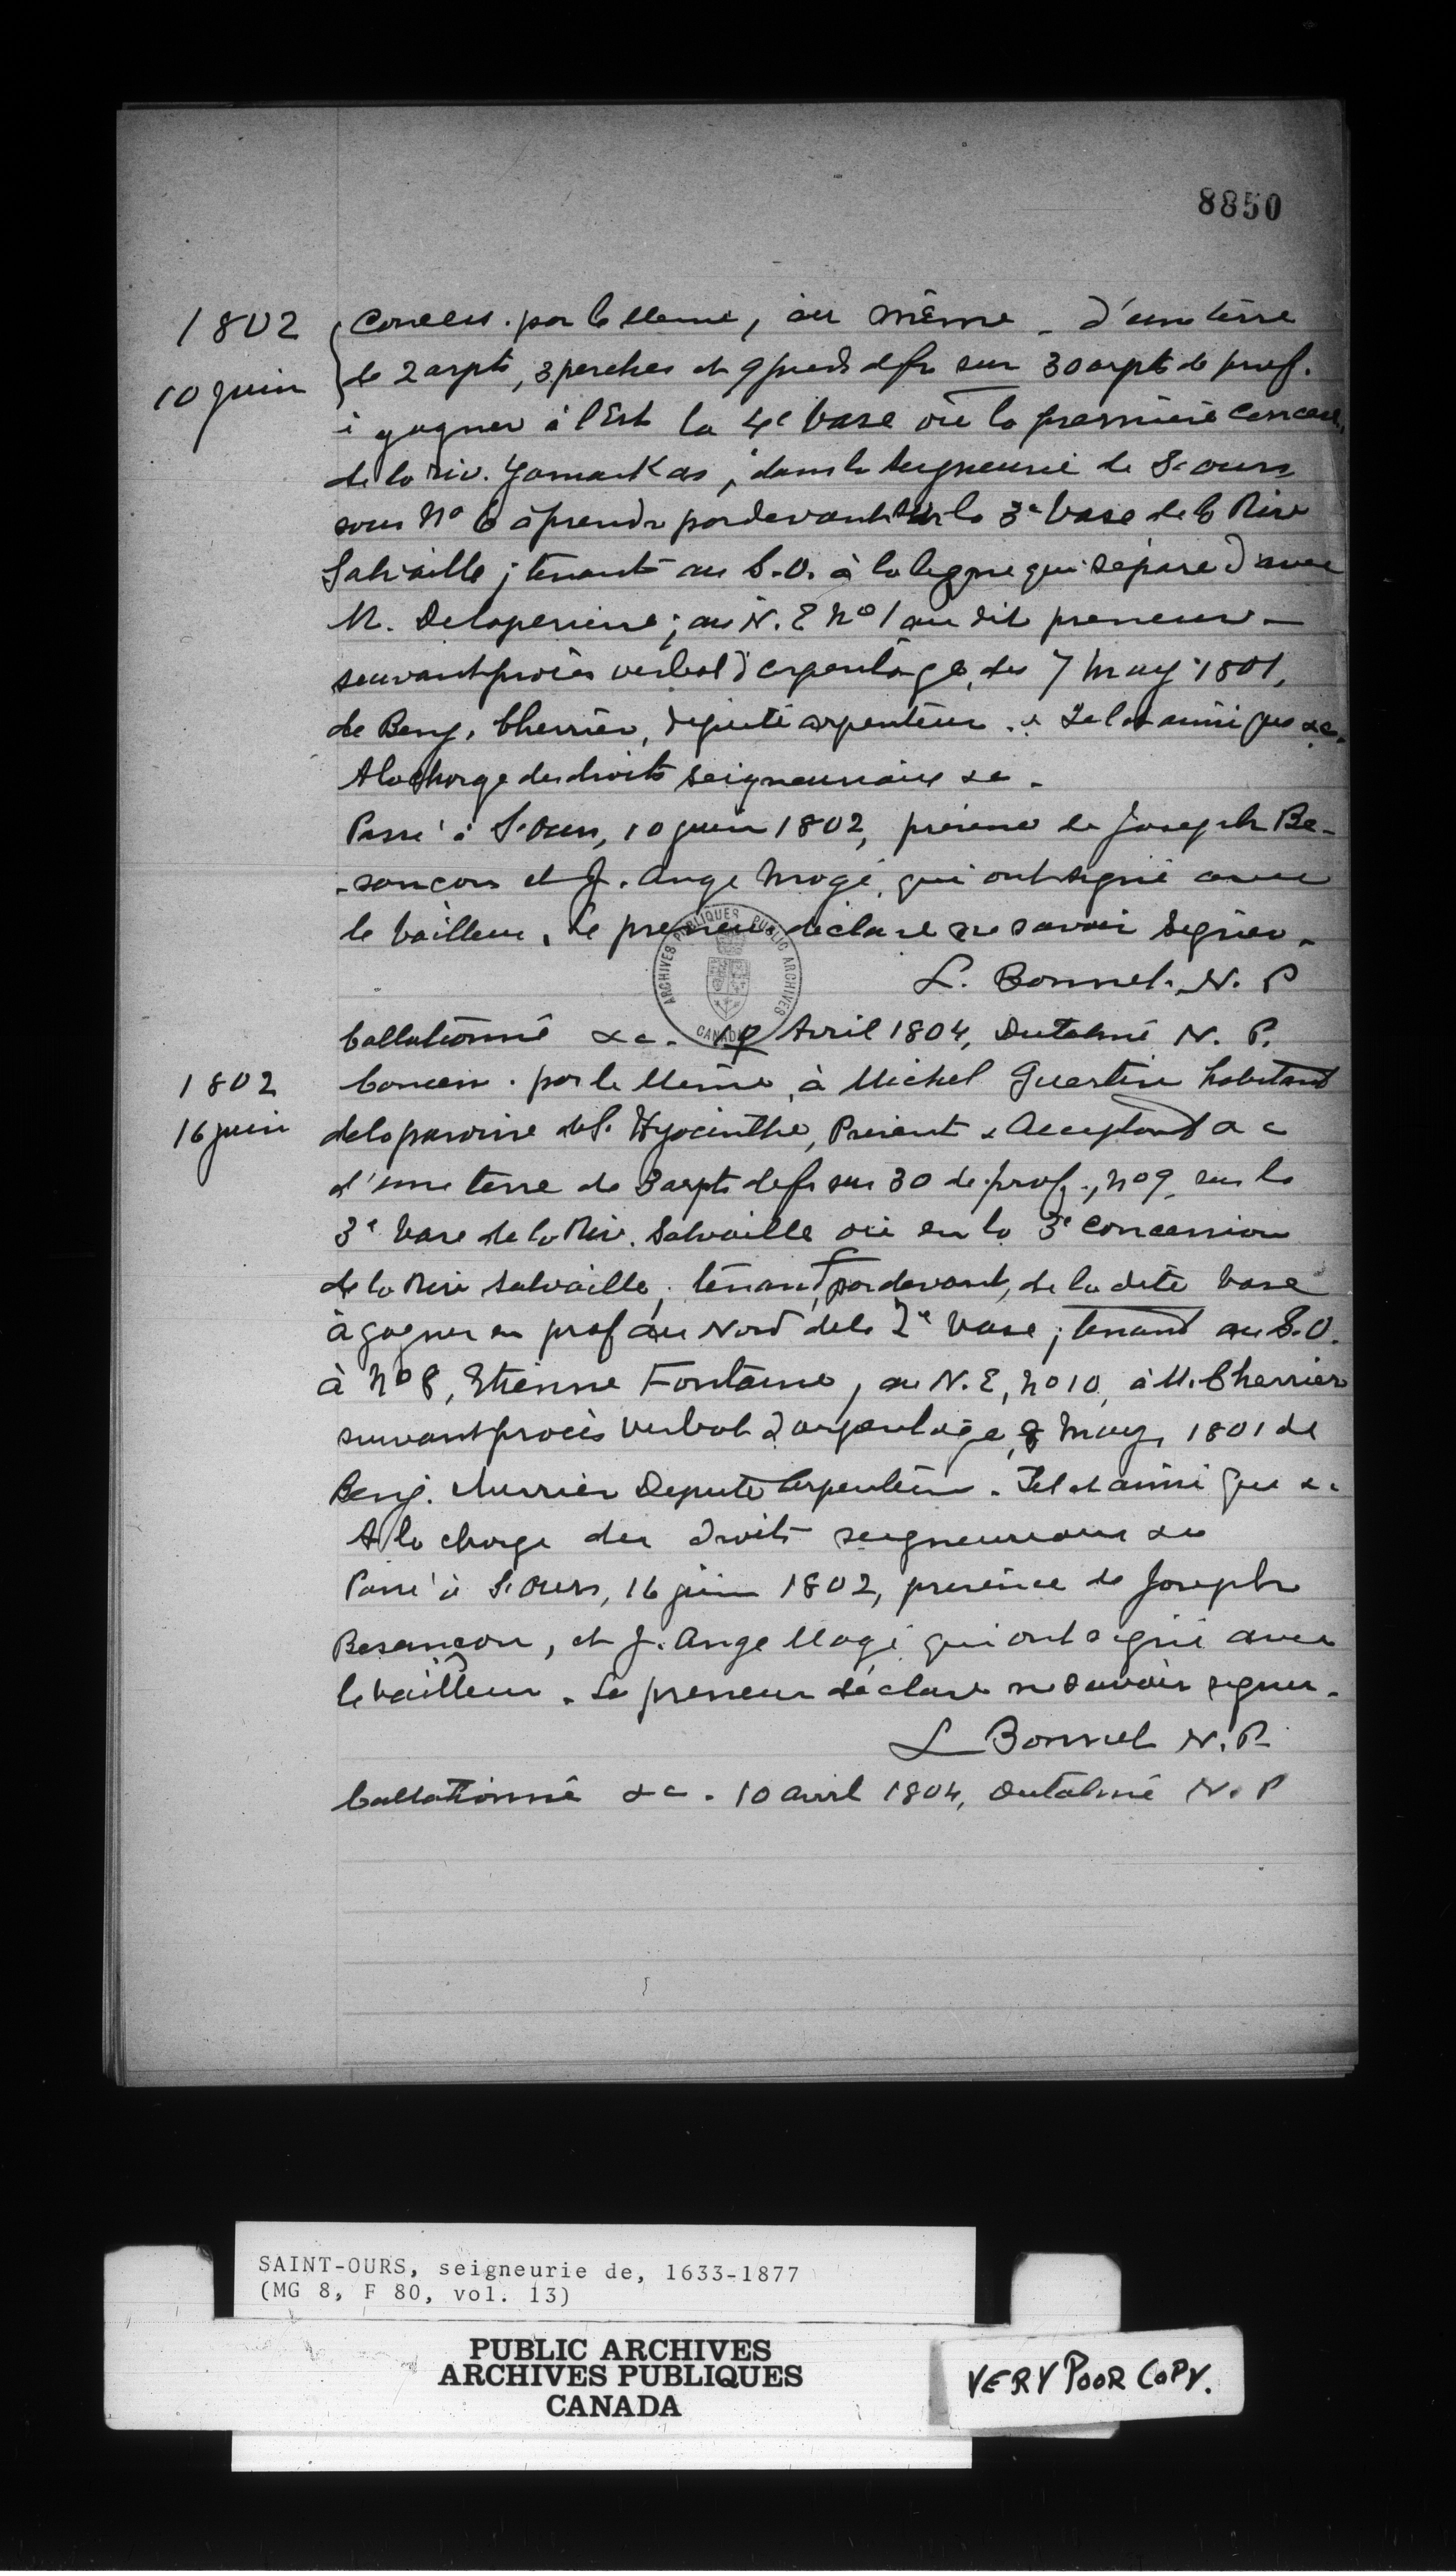 8850
1802
10 juin
Concess. par le Meme, au même _ d'une terre
de 2 arpts, 3 perches et 9 pieds de fr sur 30 arpts de prof.
à gagner à l'Est la 4e base où la premiere Concess.
de la riv. Yamaskas, dans la Seigneurie de St ours
sous No 6 à prendre par devant sur la 3e base de la Rive
Salvaille ; tenant au S.O. à la ligne qui sépare d'avec
M. Delaperiere ; au N.E No 1 au dit preneur _
suivant procès verbal d'arpentage, du 7 may 1801,
de Benj. Cherrier, député arpenteur. Tel et ainsi que &c.
A la charge des droits seigneuriaux &c.
Passé à St Ours, 10 juin 1802, présence de Joseph Be-
-sançon et J. Ange Magé, qui ont signé avec
le bailleur. Le preneur déclare ne savoir signer.
L. Bonnet. N. P
Collationné &c. Avril 1804, Dutalmé N. P.
1802
16 juin
Concess. par le Meme, à Michel Guertin habitant
de la paroisse de St Hyacinthe, Présent & Acceptant &c
d'une terre de 3 arpts de fr sur 30 de prof., No 9, sur la
3e base de la Riv. Salvaille où en la 3e Concession
de la Rive Salvaille ; tenant, par devant, de la dite base
à gagner en prof au Nord de la 2e base ; tenant au S.O.
à No 8, Etienne Fontaine, au N.E, No 10, à M. Cherrier
suivant procès verbal d'arpentage, 8 may, 1801 de
Benj. Cherrier Deputé Arpenteur. Tel et ainsi que &c
A la charge des droits seigneuriaux &c
Passé à St Ours, 16 juin 1802, présence de Joseph
Besançon, et J. Ange Magé qui ont signé avec
le bailleur. Le preneur déclare ne savoir signer.
L Bonnet N. P.
Collationné &c. 10 avril 1804, Dutalmé N. P
ARCHIVES PUBLIQUES PUBLIC ARCHIVES
CANADA
SAINT-OURS, seigneurie de, 1633-1877
(MG 8, F 80, vol. 13)
PUBLIC ARCHIVES
ARCHIVES PUBLIQUES
CANADA
VERY POOR COPY.